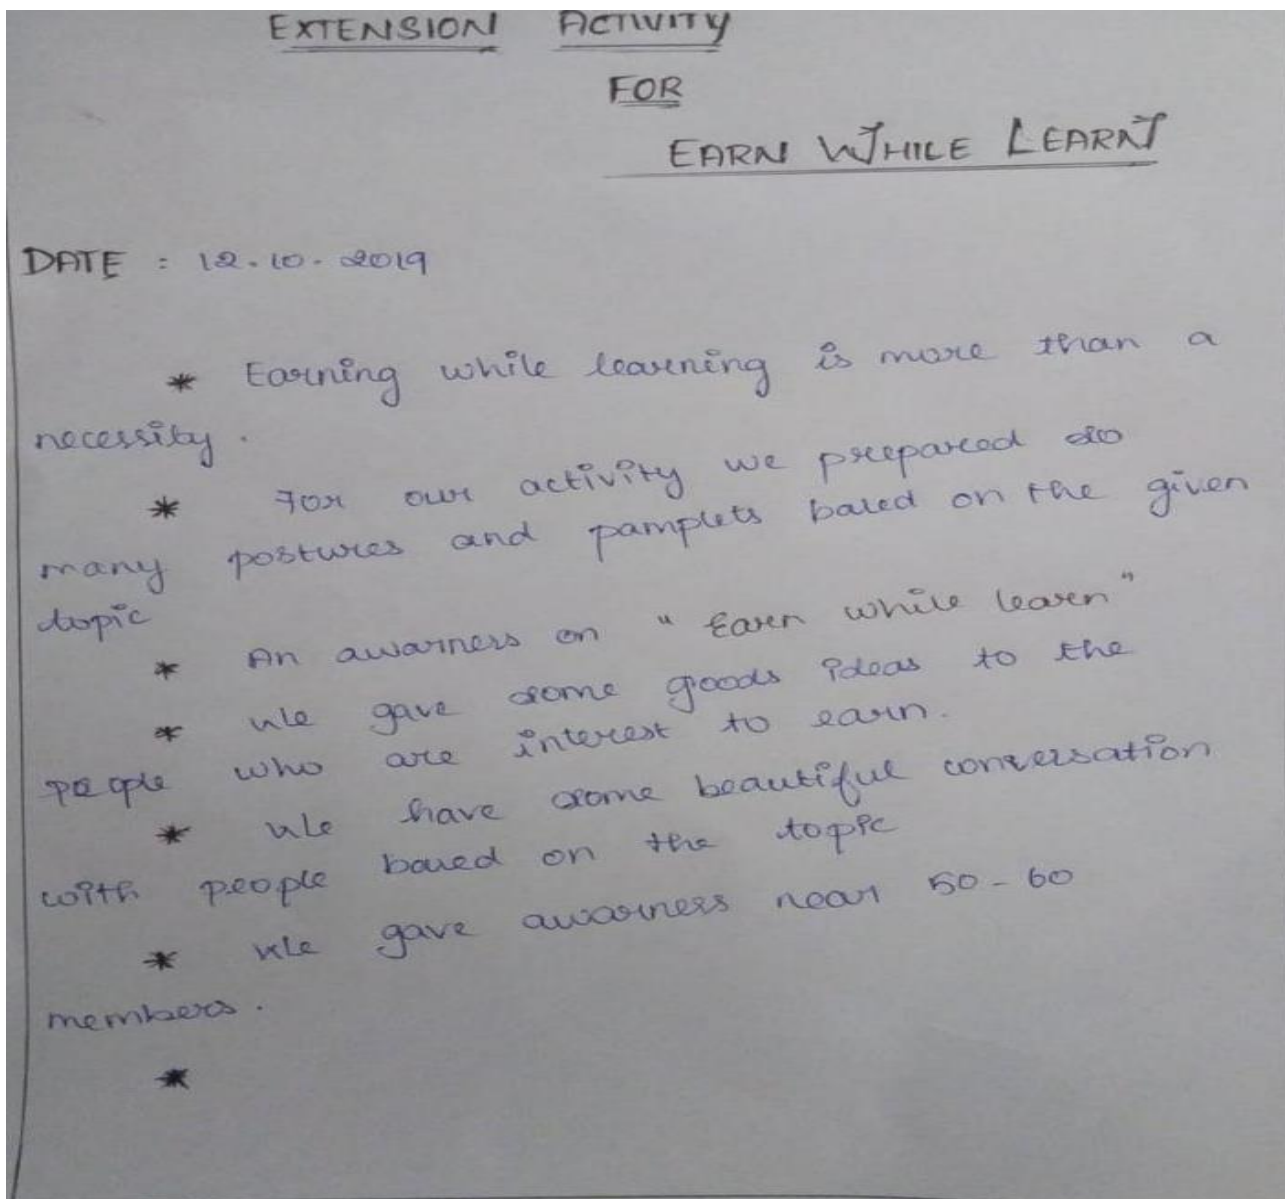 EXTENSION ACTIVITY
FOR
EARN WHILE LEARNT
DATE : 12.10.2019
* Earning while learning is more than a
necessity.
* For our activity we prepared so
many postures and pamplets based on the given
topic
* An awarness on "Earn while learn"
* We gave some goods ideas to the
people who are interest to earn.
* We have some beautiful conversation
with people based on the topic
* We gave awarness near 50-60
members.
*